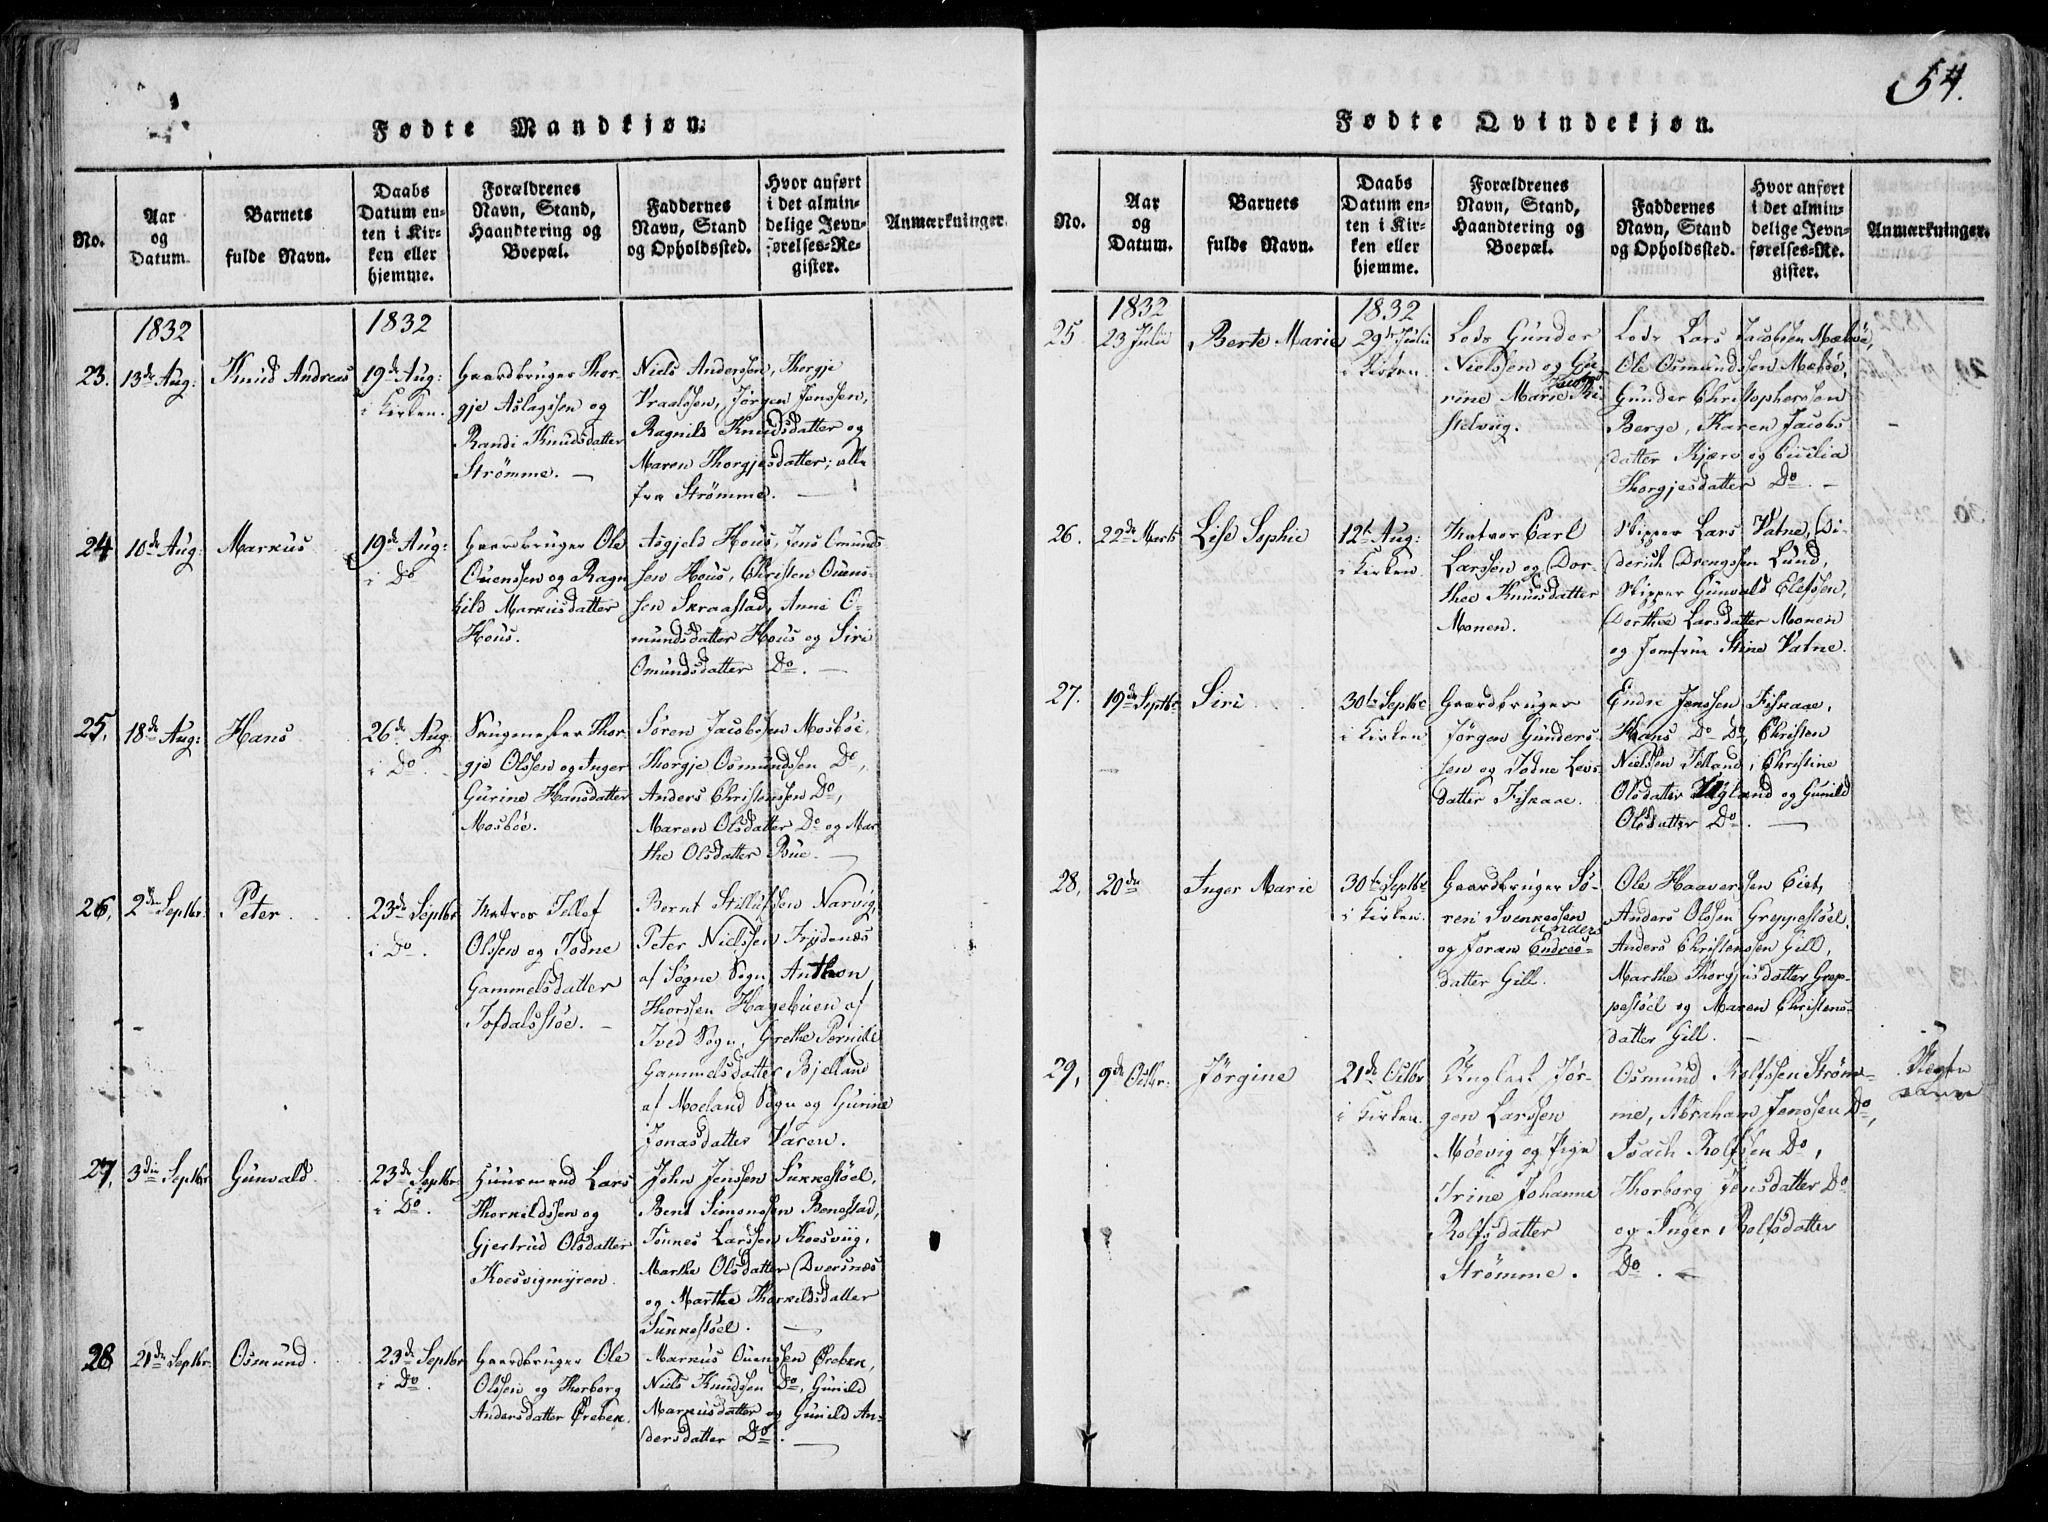 54.
Fødte Mandkjøn.
No.
Aar
og
Datum.
Barnets
fulde Navn.
Daabs
Datum en-
ten i Kir-
ken eller
hjemme.
Forældrenes
Navn, Stand,
Haandtering og
Boepæl.
Faddernes
Navn, Stand
og Opholdssted.
Hvor anført
i det almin-
delige Jevn-
førelses-Re-
gister.
Anmærkninger.
1832
1832
23.
13de Aug:
Knud Andreas
19de Aug:
i Kirken.
Gaardbruger Thor-
gje Aslagssen og
Randi Knudsdatter
Strømme. —
Niels Anderssen, Thorgje
Vraalssen, Jørgen Jenssen,
Ragnild Knudsdatter og
Maren Thorgjesdatter; alle
fra Strømme. —
24
10de Aug:
Markus
19de Aug:
i Do
Gaardbruger Ole
Ouenssen og Ragn
hild Markusdatter
Hous.
Asgjeld Hous, Jens Omunds
sen Hous, Christen Ouens-
sen Skraastad, Anne O-
mundsdatter Hous og Siri
Omundsdatter Do. —
25,
18de Aug:
Hans
26de Aug
i Do.
Thor
gje Olssen og Inger
Gurine Hansdatter
Mosbøe.
Søren Jacobssen Mosbøe,
Thorgje Osmundssen Do,
Anders Christenssen Do,
Maren Olsdatter Do og Mar
the Olsdatter Bue. —
26,
2den Septbr.
Peter
23de Septbr
i Do.
Matros Tellef
Olssen og Todne
Gammelsdatter
Tofdalsstøe. —
Bernt Narvig,
Peter Nielssen Frydenæs
af Søgne Sogn, Anthon
Thorssen Hagebuen af
Tved Sogn, Grethe Pernille
Gammelsdatter Bjelland
af Moeland Sogn og Gurine
Jonasdatter Varen.
27,
3die Septbr
Gunvald
23de Septbr.
i Do.
Huusmand Lars
Thorkildssen og
Gjertrud Olsdatter
Koesvigmyren.
John Jenssen Sukkestøel,
Bent Simonssen Benestad,
Tønnes Larssen Koesviig,
Marthe Olsdatter Dversnæs
og Marthe Thorkildsdatter
Sukkestøel. —
28
21de Septbr.
Osmund
23de Septbr
i Do.
Gaardbruger Ole
Olssen og Thorborg
Andersdatter Ørebek.
Markus Ouenssen Ørebek,
Niels Knudssen Do, Gunild
Markusdatter og Gunild An-
dersdatter Do. —
Fødte Qvindekjøn.
No.
Aar
og
Datum.
Barnets
fulde Navn.
Daabs
Datum en-
ten i Kir-
ken eller
hjemme.
Forældrenes
Navn, Stand,
Haandtering og
Boepæl.
Faddernes
Navn, Stand
og Opholdssted.
Hvor anført
i det almin-
delige Jevn-
førelses-Re-
gister.
Anmærkninger.
1832
1832
25.
23 Julii
Berte Marie
29de Julii
i Kirken.
Lods Gunder
Nielssen og Gu-
rine Marie Jacobsd. Ki-
stelviig.
Lods Lars Jacobsen Mæbøe,
Ole Osmundssen Mæbøe,
Gunder Christopherssen
Berge, Karen Jacobs
datter Kjære og Cicilia
Thorgjesdatter Do. —
26.
22de Marts
Lise Sophie
12te Aug:
i Kirken.
Matros Carl
Larssen og Dor-
thee Knudsdatter
Monen.
Skipper Lars Vatne, Di-
derich Drengssen Lund,
Skipper Gunvald Elefsen,
Dorthee Larsdatter Monen
og Jomfrue Stine Vatne.
27.
19de Septbr.
Siri
30te Septbr
i Kirken
Gaardbruger
Jørgen Gunders-
sen og Todne Lars-
datter Fiskaae.
Endre Jenssen Fiskaae,
Hans Do Do, Christen
Nielssen Jelland, Christine
Olsdatter og Gunild
Olsdatter Do. —
28,
20de
Inger Marie
30te Septbr
i Kirken.
Gaardbruger Sø-
ren Svenkessen
og Joran Endres- Anders
datter Gill.
Ole Haaverssen Eiet,
Anders Olssen Greppestøel,
Anders Christenssen Gill,
Marthe Thorgjusdatter Grep-
pestøel og Maren Christens-
datter Gill. —
29,
9de Octbr.
Jørgine
21de Octbr
i Kirken.
Ungkarl Jør-
gen Larssen
Møevig og Pige
Trine Johanne
Rolfsdatter
Strømme.
Osmund Rolfssen Strøm-
me, Abraham Jenssen Do,
Isach Rolfsen Do,
Thorborg Jensdatter Do
og Inger Rolfsdatter
Do. —